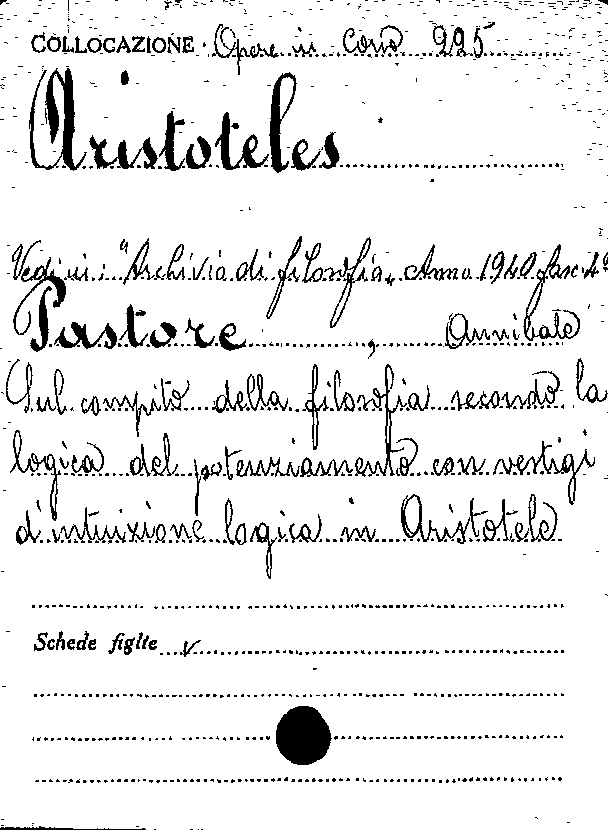 COLLOCAZIONE · Opere in Corso 225
Aristoteles
Vedi in: "Archivio di filosofia" Anno 1940 fasc. 4°
Pastore, Annibale
Sul compito della filosofia secondo la
logica del potenziamento con vestigi
d'intuizione logica in Aristotele
Schede figlie v